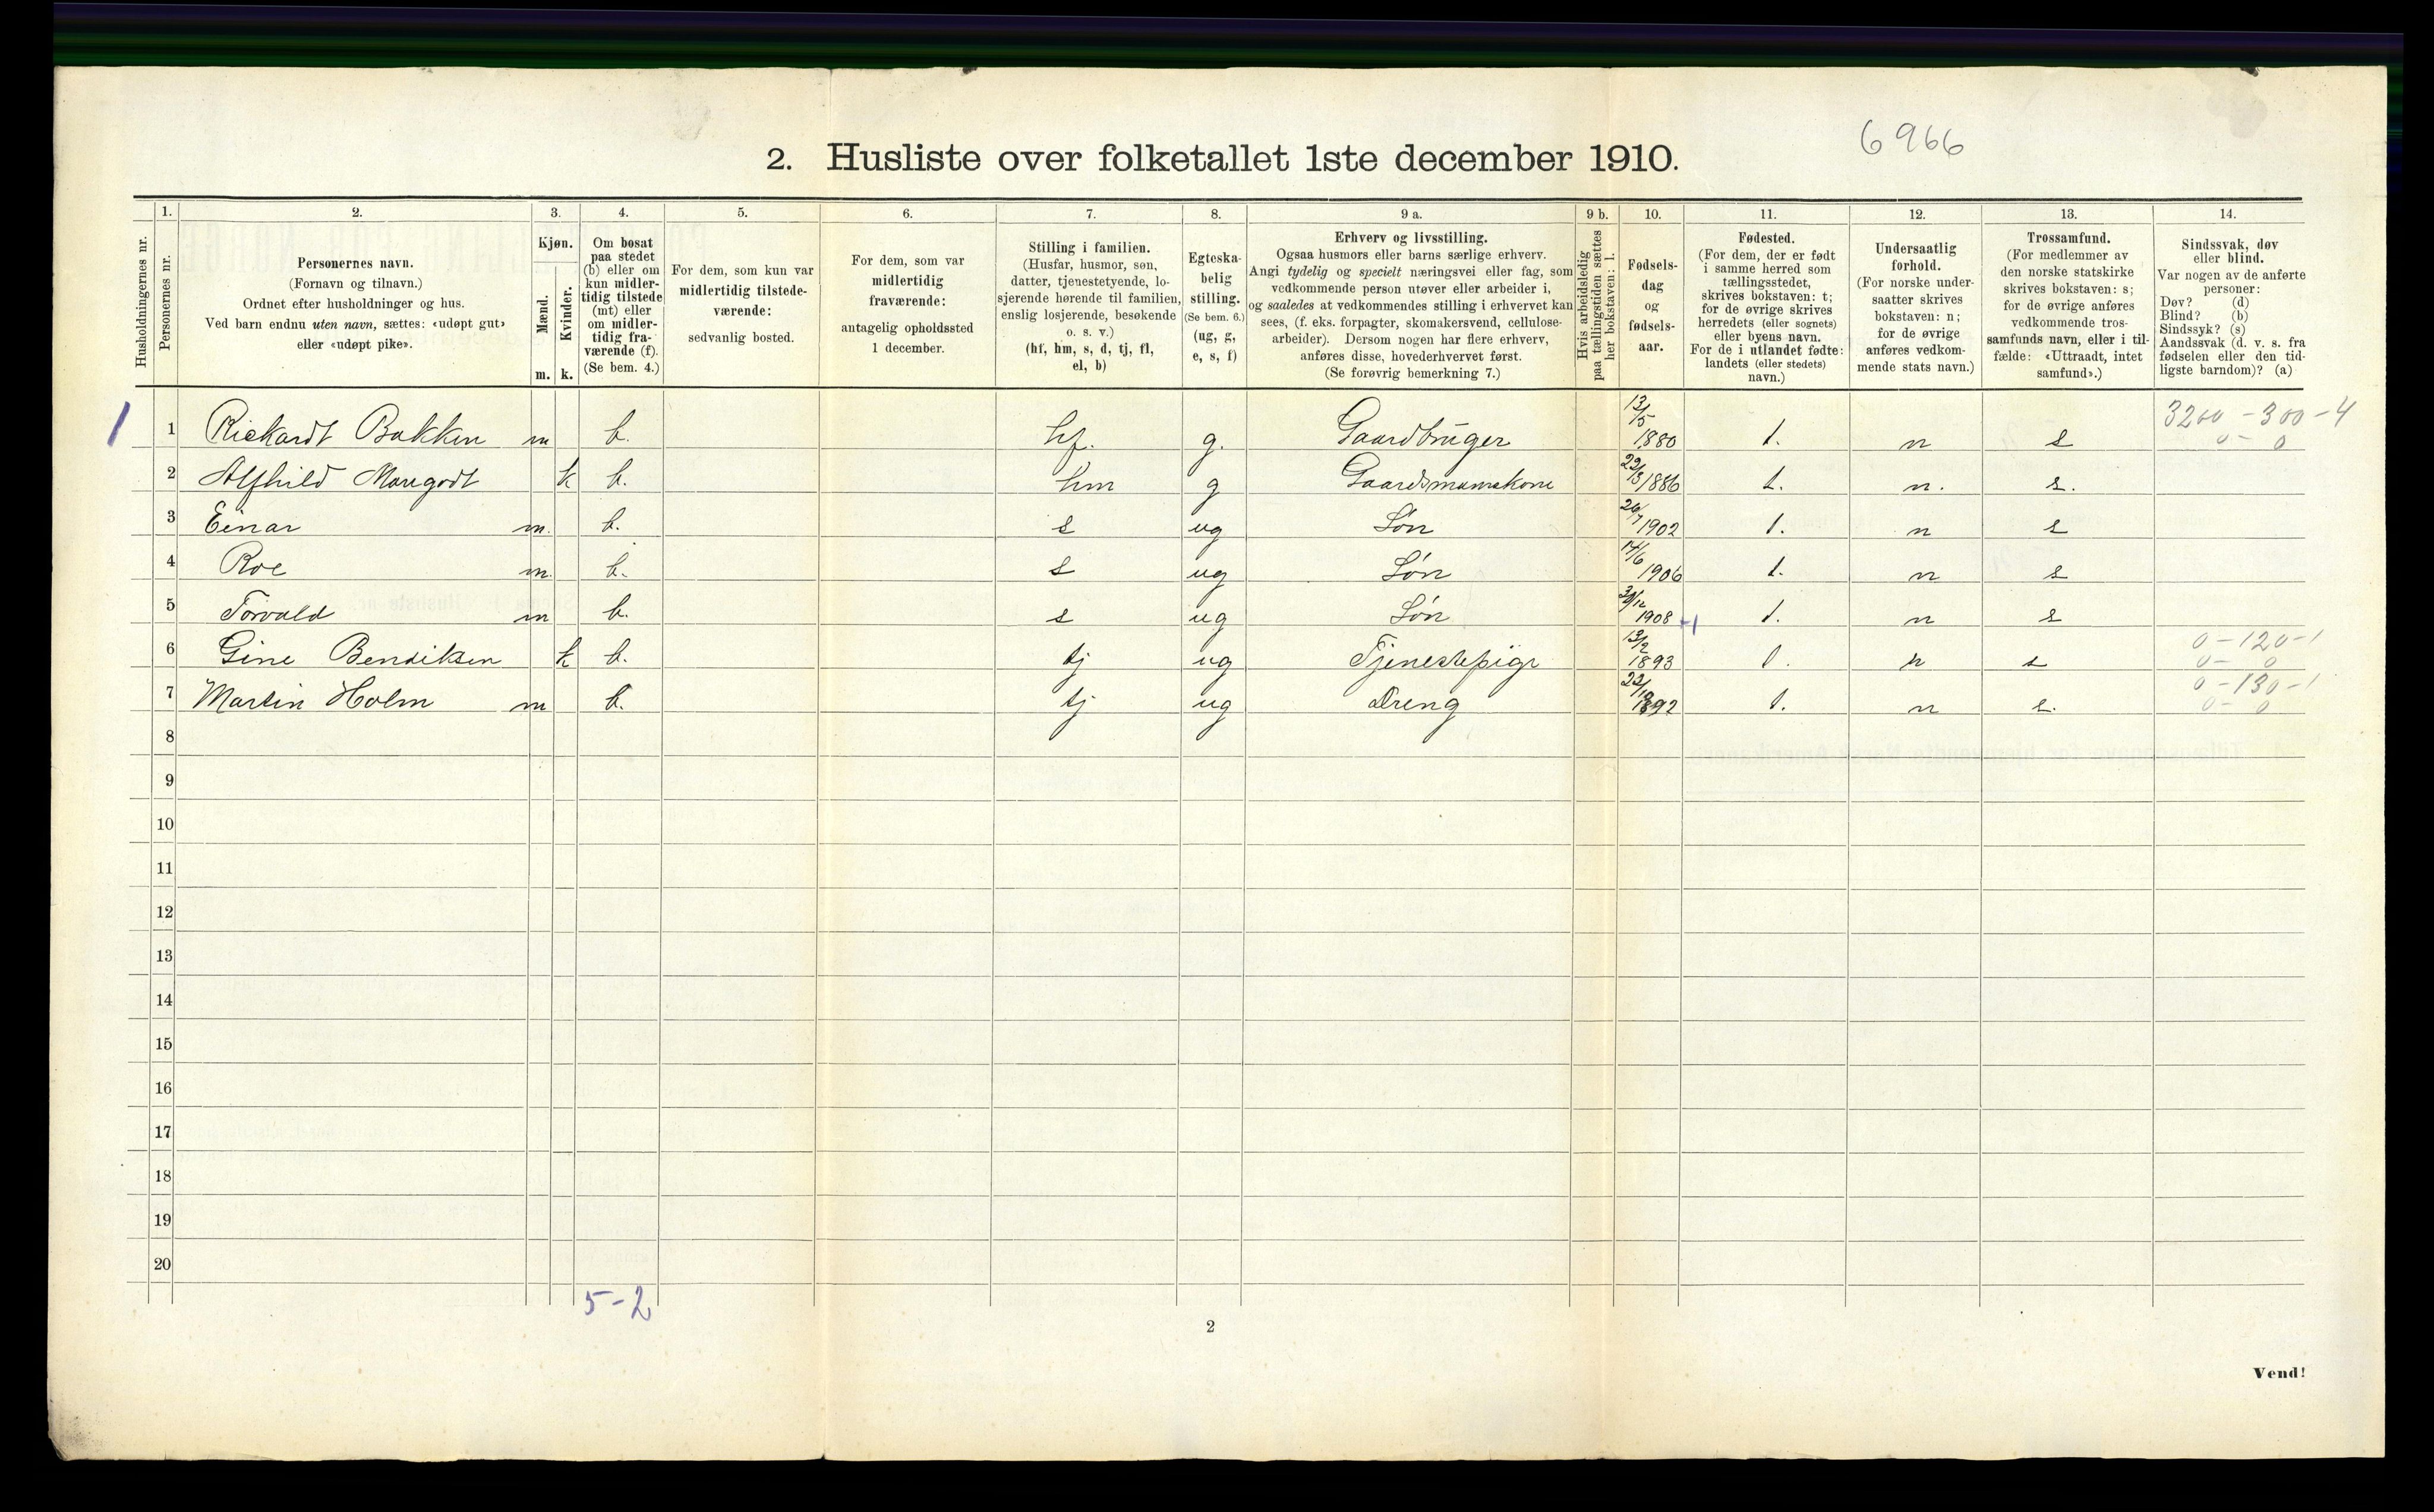 6966
2. Husliste over folketallet 1ste december 1910.
Husholdningernes nr.
1.
Personernes nr.
2.
Personernes navn.
(Fornavn og tilnavn.)
Ordnet efter husholdninger og hus.
Ved barn endnu uten navn, sættes: «udøpt gut»
eller «udøpt pike».
3.
Kjøn.
Mænd.
Kvinder.
m. k.
4.
Om bosat
paa stedet
(b) eller om
kun midler-
tidig tilstede
(mt) eller
om midler-
tidig fra-
værende (f).
(Se bem. 4.)
5.
For dem, som kun var
midlertidig tilstede-
værende:
sedvanlig bosted.
6.
For dem, som var
midlertidig
fraværende:
antagelig opholdssted
1 december.
7.
Stilling i familien.
(Husfar, husmor, søn,
datter, tjenestetyende, lo-
sjerende hørende til familien,
enslig losjerende, besøkende
o. s. v.)
(hf, hm, s, d, tj, fl,
el, b)
8.
Egteska-
belig
stilling.
(Se bem. 6.)
(ug, g,
e, s, f)
9 a.
Erhverv og livsstilling.
Ogsaa husmors eller barns særlige erhverv.
Angi tydelig og specielt næringsvei eller fag, som
vedkommende person utøver eller arbeider i,
og saaledes at vedkommendes stilling i erhvervet kan
sees, (f. eks. forpagter, skomakersvend, cellulose-
arbeider). Dersom nogen har flere erhverv,
anføres disse, hovederhvervet først.
(Se forøvrig bemerkning 7.)
9 b.
Hvis arbeidsledig
paa tællingstiden sættes
her bokstaven: l.
10.
Fødsels-
dag
og
fødsels-
aar.
11.
Fødested.
(For dem, der er født
i samme herred som
tællingsstedet,
skrives bokstaven: t;
for de øvrige skrives
herredets (eller sognets)
eller byens navn.
For de i utlandet fødte:
landets (eller stedets)
navn.)
12.
Undersaatlig
forhold.
(For norske under-
saatter skrives
bokstaven: n;
for de øvrige
anføres vedkom-
mende stats navn.)
13.
Trossamfund.
(For medlemmer av
den norske statskirke
skrives bokstaven: s;
for de øvrige anføres
vedkommende tros-
samfunds navn, eller i til-
fælde: «Uttraadt, intet
samfund».)
14.
Sindssvak, døv
eller blind.
Var nogen av de anførte
personer:
Døv? (d)
Blind? (b)
Sindssyk? (s)
Aandssvak (d. v. s. fra
fødselen eller den tid-
ligste barndom)? (a)
1 1 Rickardt Bakken m b. hf. g. Gaardbruger 13/5 1880 t. n s 3200-300-4 0-0
2 Alfhild Margodt k b. hm g Gaardsmanskone 22/3 1886 t. n. s.
3 Einar m. b. s ug Søn 26/7 1902 t. n s
4 Roe m. b. s ug Søn 14/6 1906 t. n s
5 Torvald m b. s ug Søn 1908 t. n s
6 Gine Bendiksen k b. tj ug Tjenestepige 13/2 1893 t. n s 0-120-1 0-0
7 Martin Holm m b. tj ug Dreng 22/10 1892 t. n s. 0-130-1 0-0
8
9
10
11
12
13
14
15
16
17
18
19
20
5-2
2
Vend!